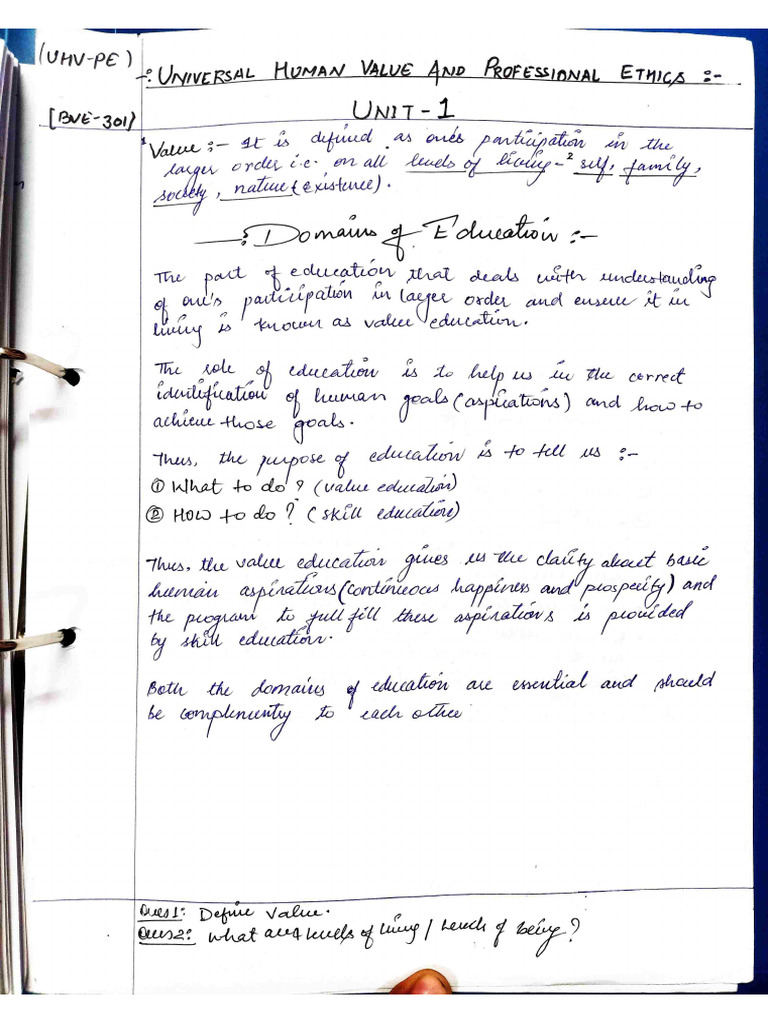 (UHV-PE)
-: UNIVERSAL HUMAN VALUE AND PROFESSIONAL ETHICS :-
[BVE-301)
UNIT-1
1 Value :- It is defined as one's participation in the
larger order i.e. on all levels of living -2 self, family,
society, nature (existence).
-: Domains of Education :-
The part of education that deals with understanding
of one's participation in larger order and ensure it in
living is known as value education.
The role of education is to help us in the correct
identification of human goals (aspirations) and how to
achieve those goals.
Thus, the purpose of education is to tell us :-
① What to do? (value education)
② How to do? (skill education)
Thus, the value education gives us the clarity about basic
human aspirations (continueous happiness and prosperity) and
the program to full fill these aspirations is provided
by skill education.
Both the domains of education are essential and should
be complimenty to each other
Ques1: Define Value.
Ques2: What are 4 levels of living / levels of being?